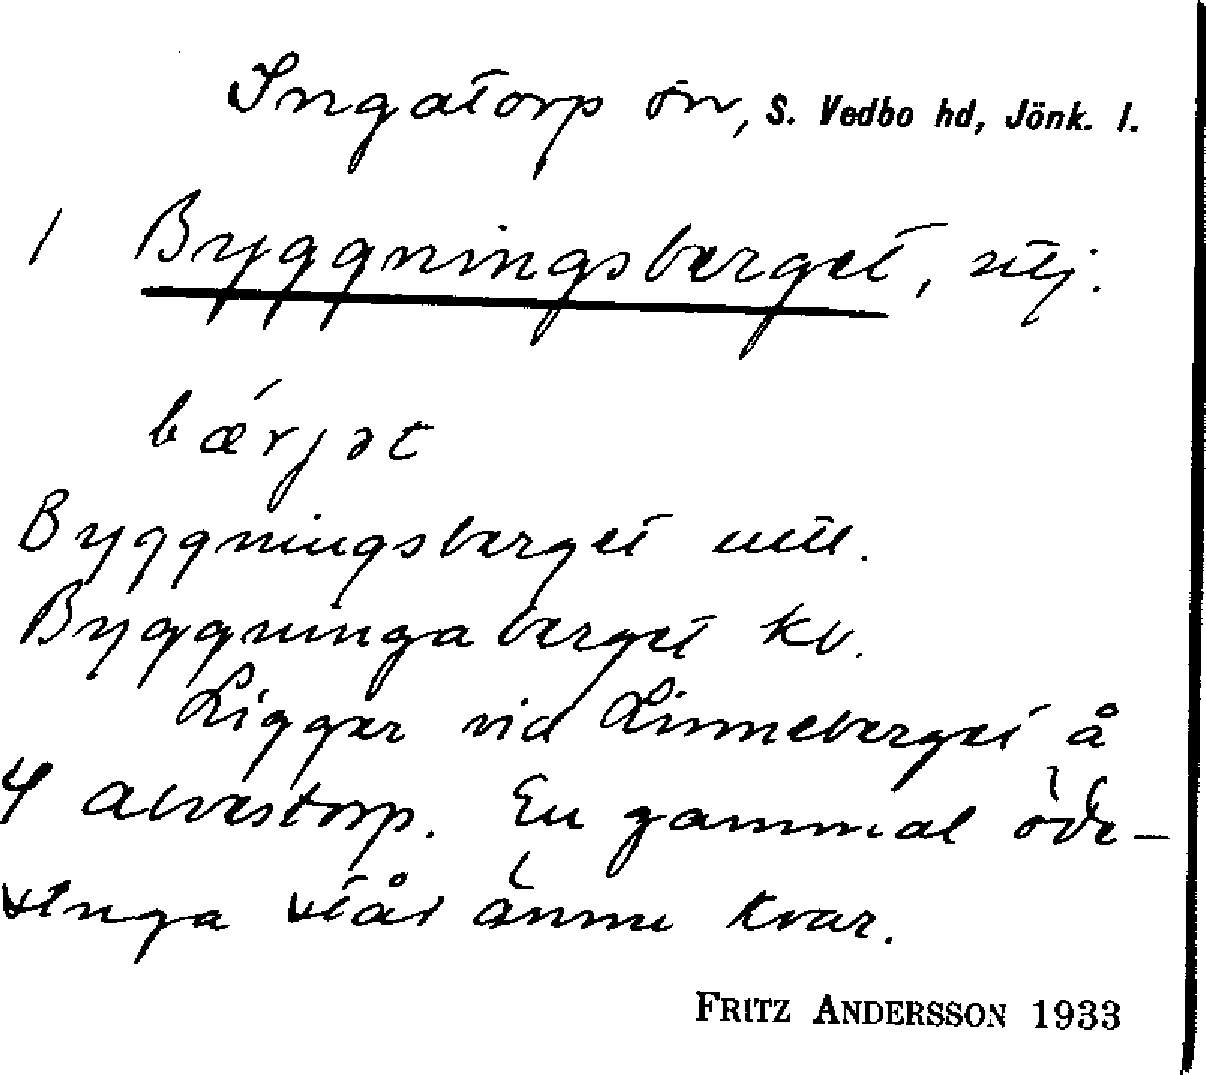 Ingatorp sn, S. Vedbo hd, Jönk. l.
1 Byggningsberget, utj.
bǽrjət
Byggningsberget utt.
Byggningaberget kv.
Ligger vid Linneberget å
4 Alvestorp. En gammal öde-
stuga står ännu kvar.
FRITZ ANDERSSON 1933